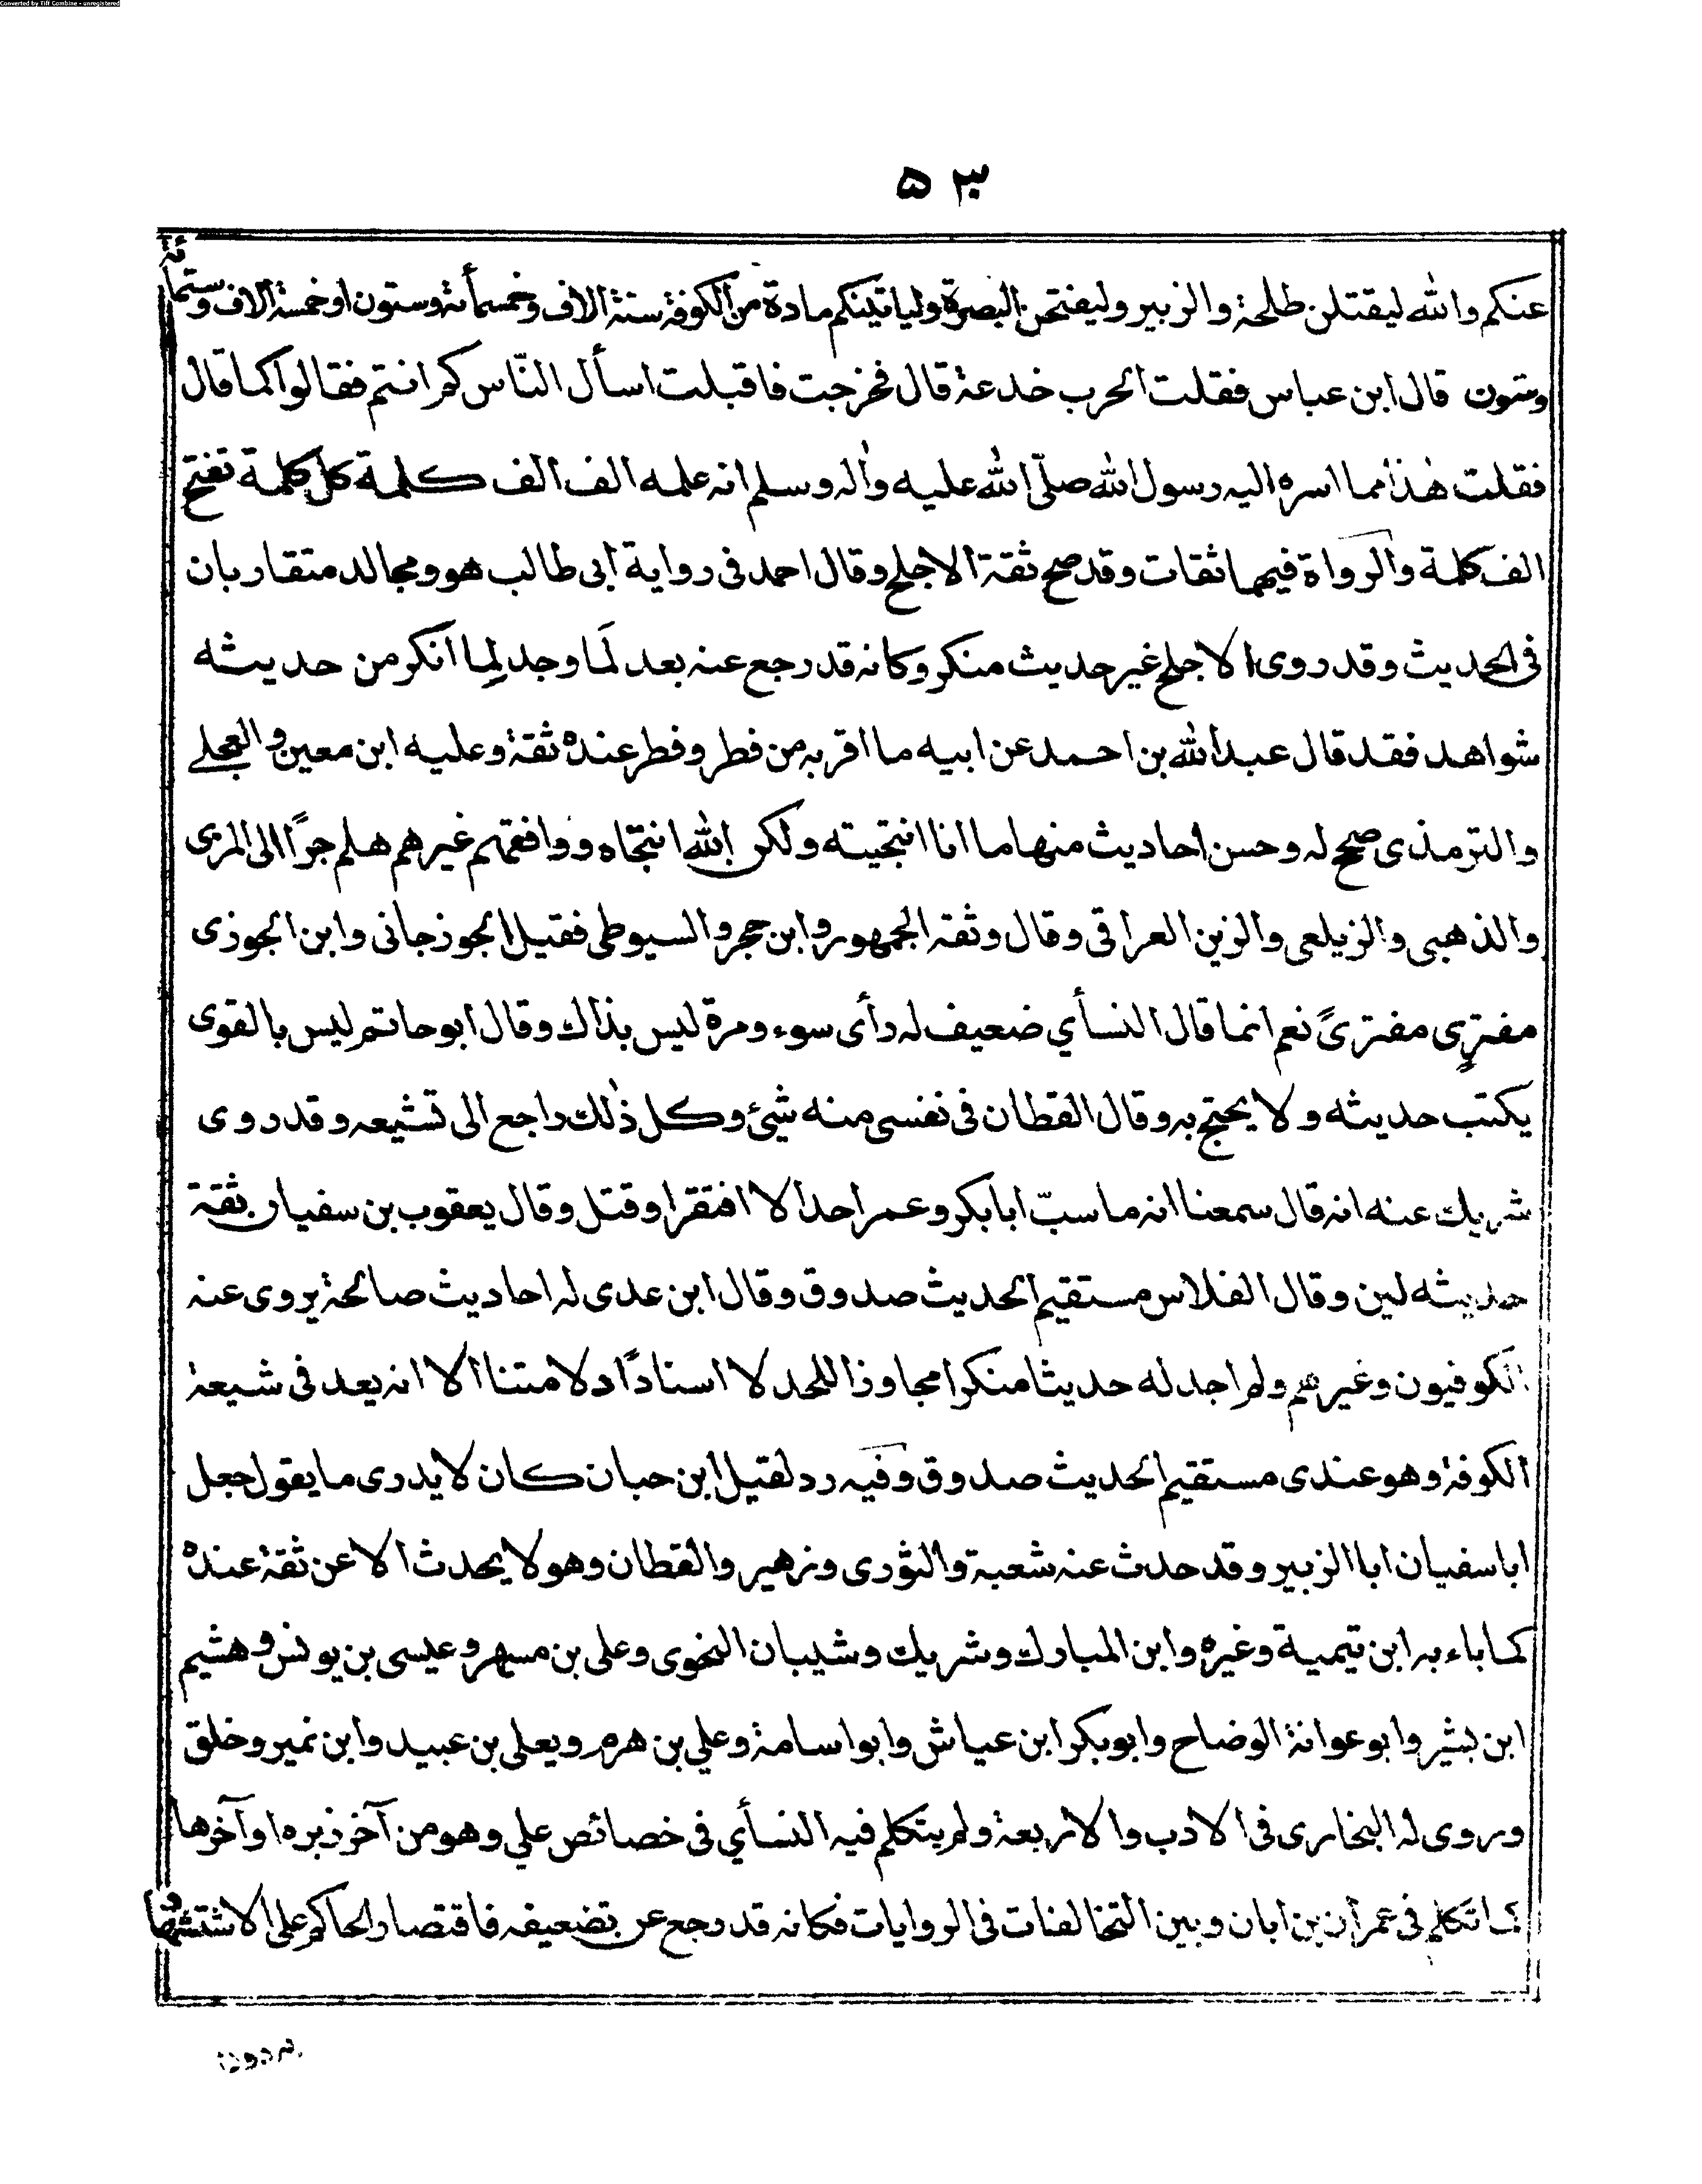 Converted by Tiff Combine - unregistered
۵۳
عنكم والله ليقتلن طلحة والزبير وليفتحن البصرة ولياتينكم مادة من الكوفة ستة الاف وخمسمأئة وستون او خمسة الاف وستمائة
وستون قال ابن عباس فقلت الحرب خدعة قال فخرجت فاقبلت اسأل النّاس كم انتم فقالوا كما قال
فقلت هٰذا مما اسره اليه رسول الله صلّى الله عليه واٰله وسلم انه علمه الف الف كلمة كل كلمة تفتح
الف كلمة والرواة فيها ثقات وقد صح ثقة الاجلح وقال احمد فى رواية ابى طالب هو ومجالد متقاربان
فى الحديث وقد روى الاجلح غير حديث منكر وكانه قد رجع عنه بعد لَما وجد لِما انكر من حديثه
شواهد فقد قال عبد الله بن احمد عن ابيه ما اقربه من فطر وفطر عنده ثقة وعليه ابن معين والعجلے
والترمذى صحح له وحسن احاديث منها ما انا انتجيته ولكن الله انتجاه ووافقهم غيرهم هلم جرًا الى المزى
والذهبى والزيلعى والزين العراقى وقال وثقه الجمهور وابن حجر والسيوطى فقيل الجوزجانى وابن الجوزى
مفترٍى مفترىً نعم انما قال النسأي ضعيف له رأى سوء ومرة ليس بذاك وقال ابو حاتم ليس بالقوى
يكتب حديثه ولا يحتج به وقال القطان فى نفسى منه شيئ وكل ذٰلك راجع الى تشيعه وقد روى
شريك عنه انه قال سمعنا انه ما سبّ ابا بكر وعمر احد الا افتقر او قتل وقال يعقوب بن سفيان ثقة
حديثه لين وقال الفلاس مستقيم الحديث صدوق وقال ابن عدى له احاديث صالحة يروى عنه
الكوفيون وغيرهم ولم اجد له حديثا منكرا مجاوزا للحد لا اسنادًا ولا متنا الا انه يعد فى شيعة
الكوفة وهو عندى مستقيم الحديث صدوق وفيه رد لقيل ابن حبان كان لا يدرى ما يقول جعل
ابا سفيان ابا الزبير وقد حدث عنه شعبة والثورى وزهير والقطان وهو لا يحدث الا عن ثقة عنده
كما باء به ابن تيمية وغيره وابن المبارك وشريك وشيبان النحوى وعلى بن مسهر وعيسى بن يونس وهشيم
ابن بشير وابو عوانة الوضاح وابو بكر ابن عياش وابو اسامة وعلي بن هرم ويعلى بن عبيد وابن نمير وخلق
وروى له البخارى فى الادب والاربعة ولم يتكلم فيه النسأي فى خصائص علي وهو من آخر زبره او آخرها
كما تكلم فى عمران بن ابان وبين التخالفات فى الروايات فكانه قد رجع عن تضعيفه فاقتصار الحاكم على الاستشهاد